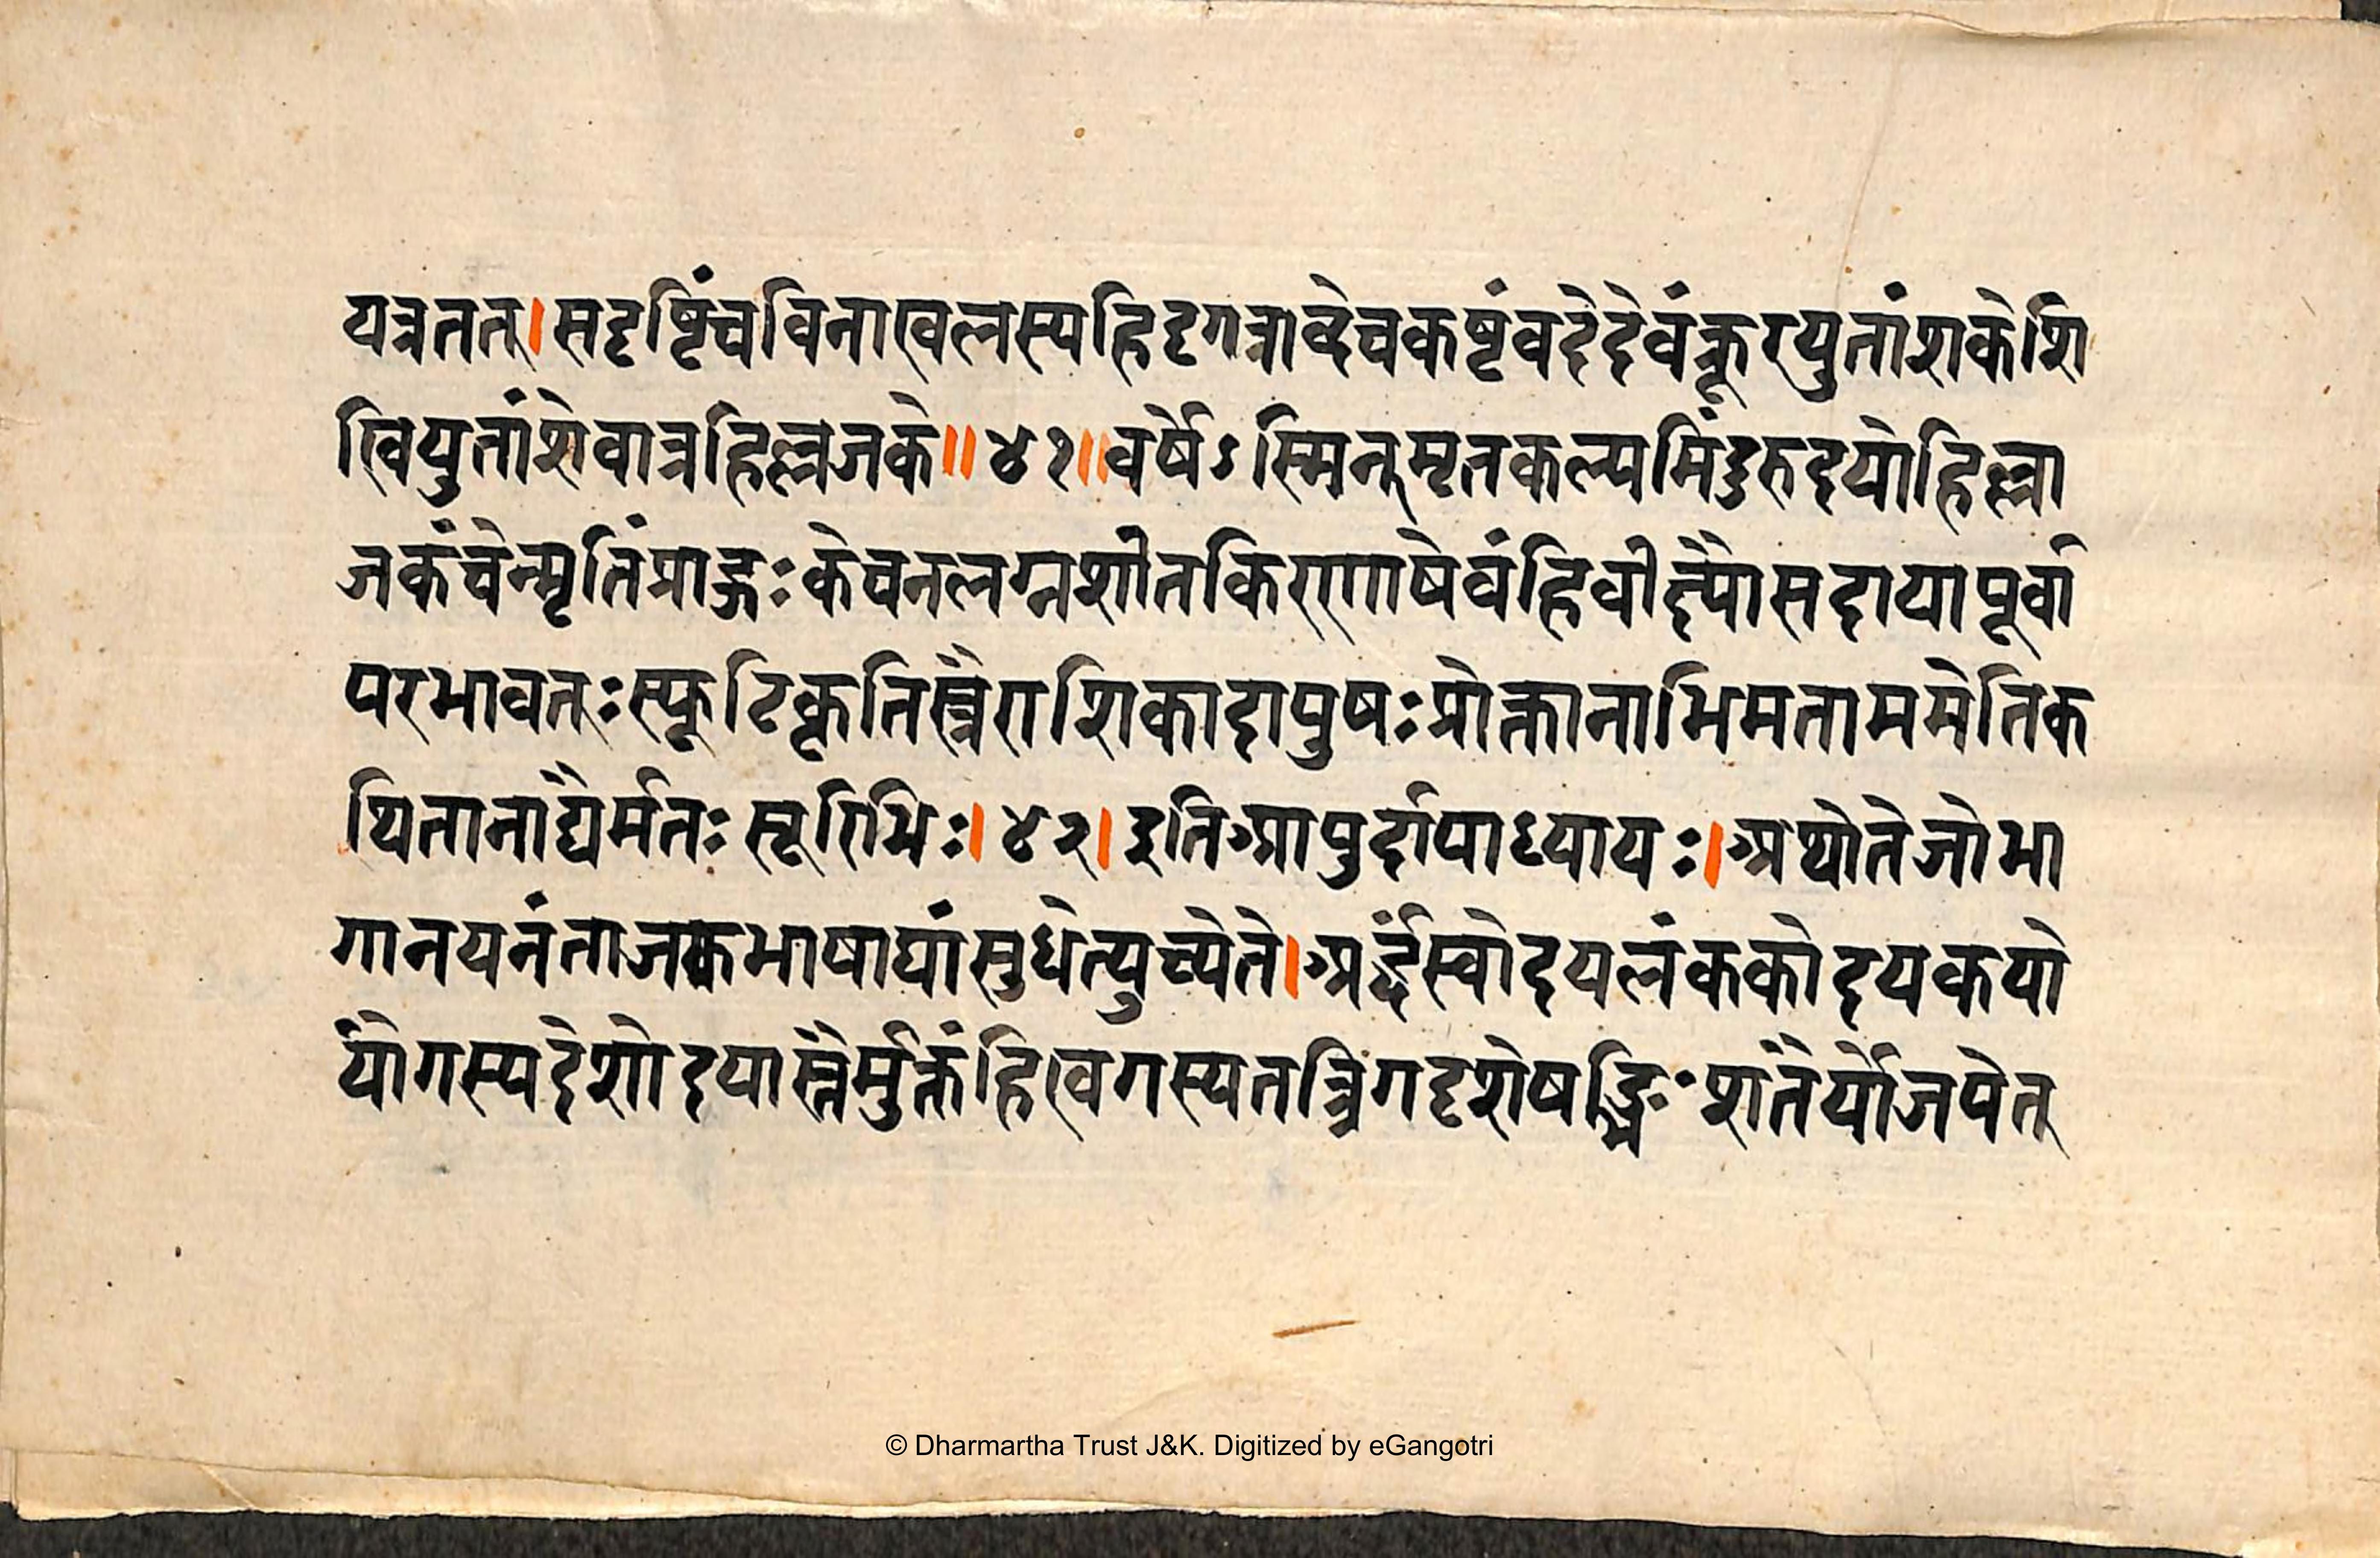 यत्रतत्।सदृष्टिंचविनाखलस्यहिदृगत्राब्देचकष्टंवदेदेवंक्रूरयुतांशकेशि
खियुतांशेवात्रहिल्लाजके॥४१॥वर्षेऽस्मिन्मृतकल्पमिंदुरुदयोहिल्ला
जकंचेन्मृतिंप्राहुःकेचनलग्नशीतकिरणाषेवंहिवीर्त्यौसदायापूर्वा
परभावतःस्फूटिकृतिस्त्रैराशिकादापुषःप्रोक्तानाभिमताममेतिक
थितानाद्यैर्मतःसूरिभिः।४२।इतिआपुर्दापाध्यायः।अथोतेजोभा
गानयनंताजकभाषाघांसुधेत्युच्येते।अर्द्धंस्वोदयलंककोदयकयो
र्योगस्यदेशोदयास्त्रैर्मुक्तंहिखगस्यतन्त्रिगदृशेषड्घ्निःशतैर्योजयेत्
© Dharmartha Trust J&K. Digitized by eGangotri